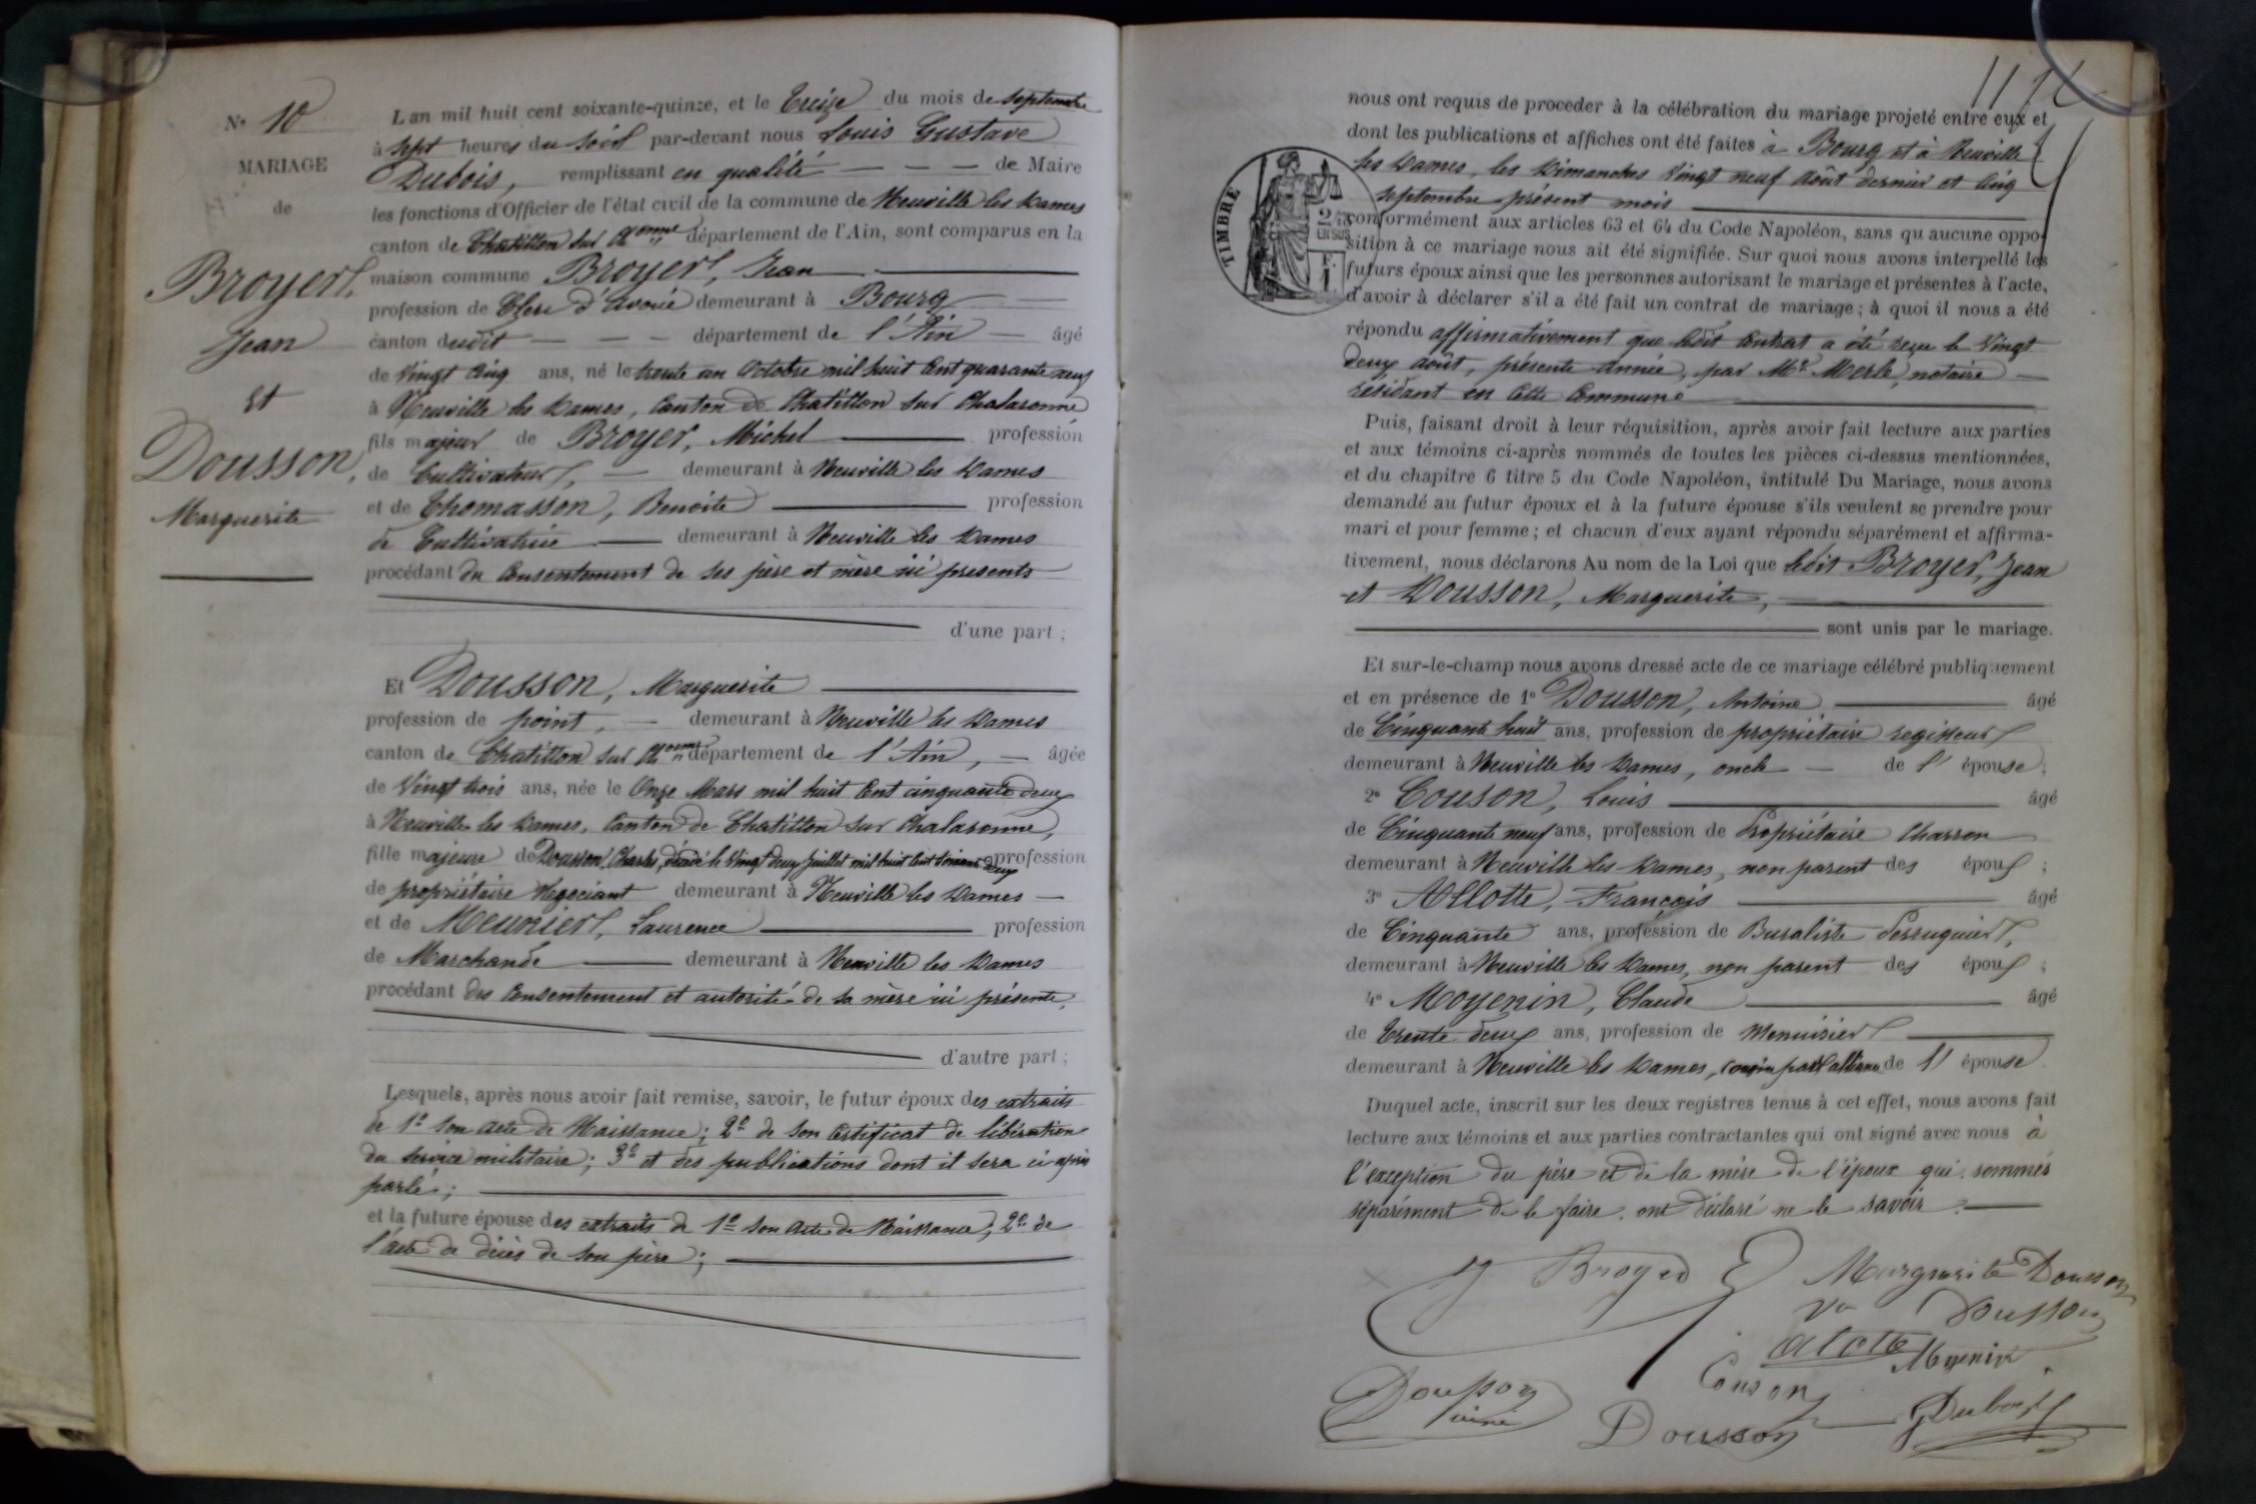 N° 10
MARIAGE
de
Broyer,
Jean
et
Dousson,
Marguerite
L'an mil huit cent soixante-quinze, et le Treize du mois de Septembre
à sept heures du soir par-devant nous Louis Gustave
Dubois, remplissant en qualité de Maire
les fonctions d'Officier de l'état civil de la commune de Neuville les Dames
canton de Chatillon sur Ch.onne département de l'Ain, sont comparus en la
maison commune Broyer, Jean
profession de Clerc d'avoué demeurant à Bourg
canton dudit département de l'Ain âgé
de Vingt cinq ans, né le trente un Octobre mil huit cent quarante neuf
à Neuville les Dames, Canton de Chatillon sur Chalaronne
fils majeur de Broyer, Michel profession
de Cultivateur, demeurant à Neuville les Dames
et de Thomasson, Benoite profession
de Cultivatrice demeurant à Neuville les Dames
procédant du consentement de ses père et mère ici présents
d'une part ;
Et Dousson, Marguerite
profession de point, demeurant à Neuville les Dames
canton de Chatillon sur Ch.onne département de l'Ain, âgée
de Vingt trois ans, née le Onze Mars mil huit cent cinquante deux
à Neuville les Dames, Canton de Chatillon sur Chalaronne,
fille majeure de Dousson, Charles, décédé le Vingt deux Juillet mil huit cent soixante deux profession
de propriétaire Négociant demeurant à Neuville les Dames
et de Meunier, Laurence profession
de Marchande demeurant à Neuville les Dames
procédant des consentement et autorité de sa mère ici présente,
d'autre part ;
Lesquels, après nous avoir fait remise, savoir, le futur époux des extraits
de 1° son acte de Naissance ; 2° de son certificat de libération
du service militaire ; 3° et des publications dont il sera ci après
parlé ;
et la future épouse des extraits de 1° son acte de Naissance, 2° de
l'acte de décès de son père ;
TIMBRE
nous ont requis de procéder à la célébration du mariage projeté entre eux et
dont les publications et affiches ont été faites à Bourg et à Neuville
les Dames, les Dimanches Vingt neuf Août dernier et Cinq
septembre présent mois
conformément aux articles 63 et 64 du Code Napoléon, sans qu'aucune oppo-
sition à ce mariage nous ait été signifiée. Sur quoi nous avons interpellé les
futurs époux ainsi que les personnes autorisant le mariage et présentes à l'acte,
d'avoir à déclarer s'il a été fait un contrat de mariage ; à quoi il nous a été
répondu affirmativement que ledit contrat a été reçu le Vingt
deux août, présente année, par Me Merle, notaire
résidant en cette Commune
Puis, faisant droit à leur réquisition, après avoir fait lecture aux parties
et aux témoins ci-après nommés de toutes les pièces ci-dessus mentionnées,
et du chapitre 6 titre 5 du Code Napoléon, intitulé Du Mariage, nous avons
demandé au futur époux et à la future épouse s'ils veulent se prendre pour
mari et pour femme ; et chacun d'eux ayant répondu séparément et affirma-
tivement, nous déclarons Au nom de la Loi que ledit Broyer, Jean
et Dousson, Marguerite,
sont unis par le mariage.
Et sur-le-champ nous avons dressé acte de ce mariage célébré publiquement
et en présence de 1° Dousson, Antoine âgé
de Cinquante huit ans, profession de propriétaire regisseur
demeurant à Neuville les Dames, oncle de l'épouse ;
2° Couson, Louis âgé
de Cinquante neuf ans, profession de Propriétaire Charron
demeurant à Neuville les Dames, non parent des époux ;
3° Allotte, François âgé
de Cinquante ans, profession de Buraliste Perruquier,
demeurant à Neuville les Dames, non parent des époux ;
4° Moyenin, Claude âgé
de Trente deux ans, profession de Menuisier
demeurant à Neuville les Dames, cousin par alliance de l'épouse
Duquel acte, inscrit sur les deux registres tenus à cet effet, nous avons fait
lecture aux témoins et aux parties contractantes qui ont signé avec nous à
l'exception du père et de la mère de l'époux qui sommés
séparément de le faire, ont déclaré ne le savoir.
J Broyer Marguerite Dousson
Ve Dousson
alotte Moyenin
Couson
Dousson
Dousson GDubois